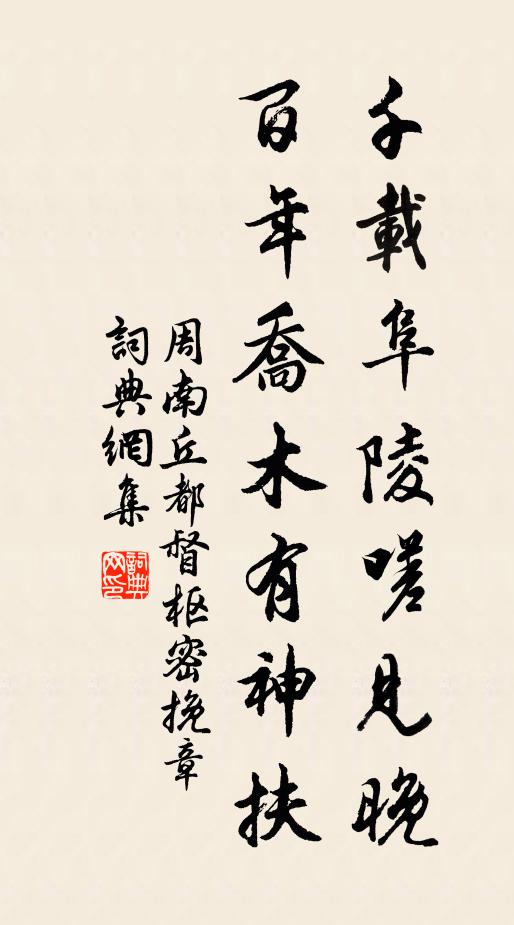 千載阜陵嗟見晚
百年喬木有神扶
周南丘都督枢密挽章
詞典網集
詞典网印